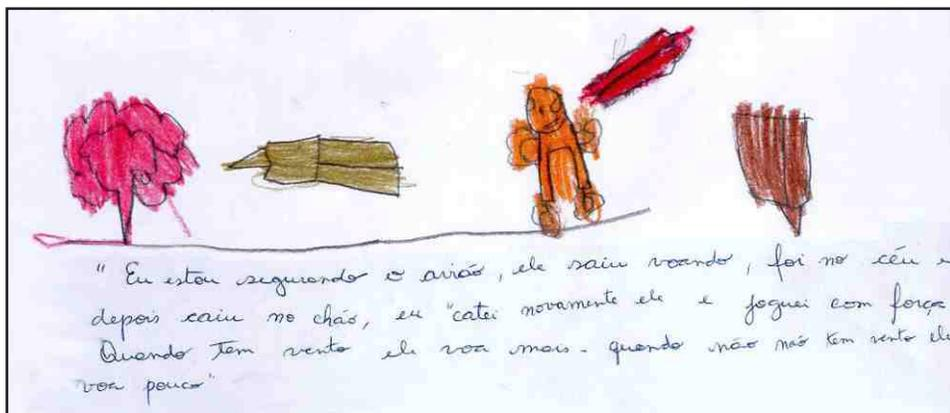 " Eu estou segurando o avião, ele saiu voando, foi no céu e
depois caiu no chão, eu "catei novamente ele e joguei com força
Quando tem vento ele voa mais - quando não não tem vento ele
voa pouco"